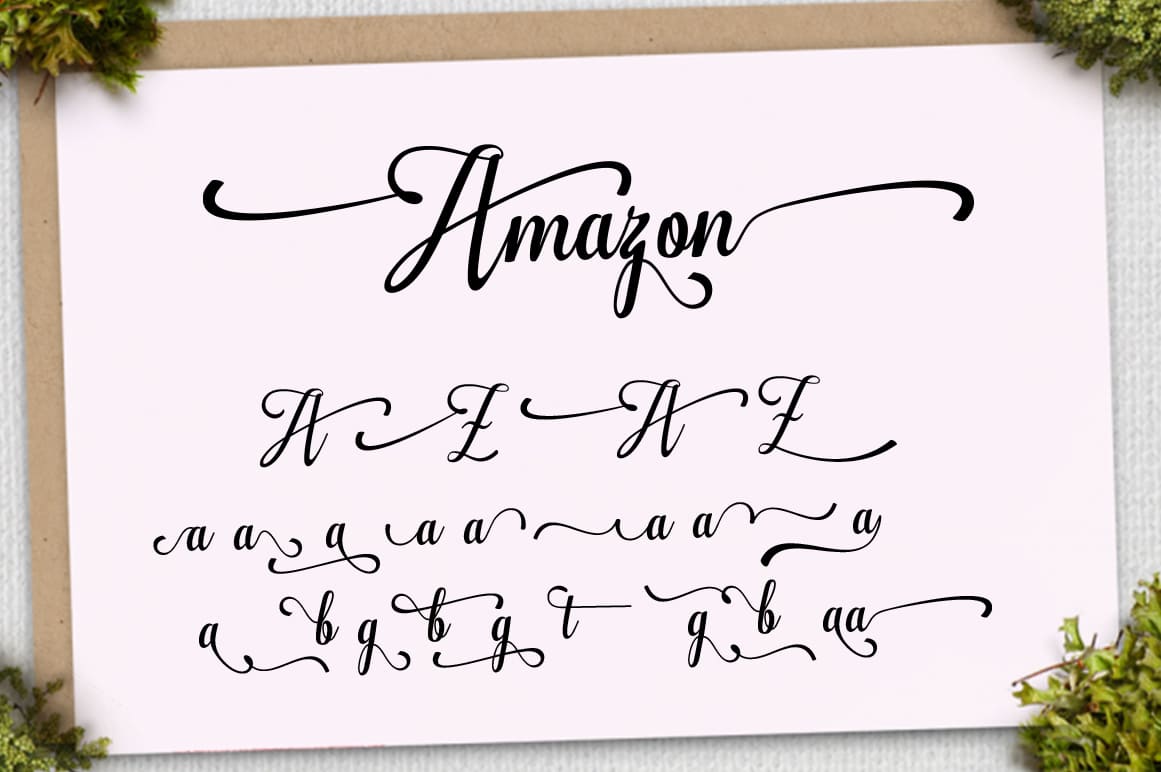 Amazon
A Z A Z
a a a a a a a a
a b g b g t g b aa